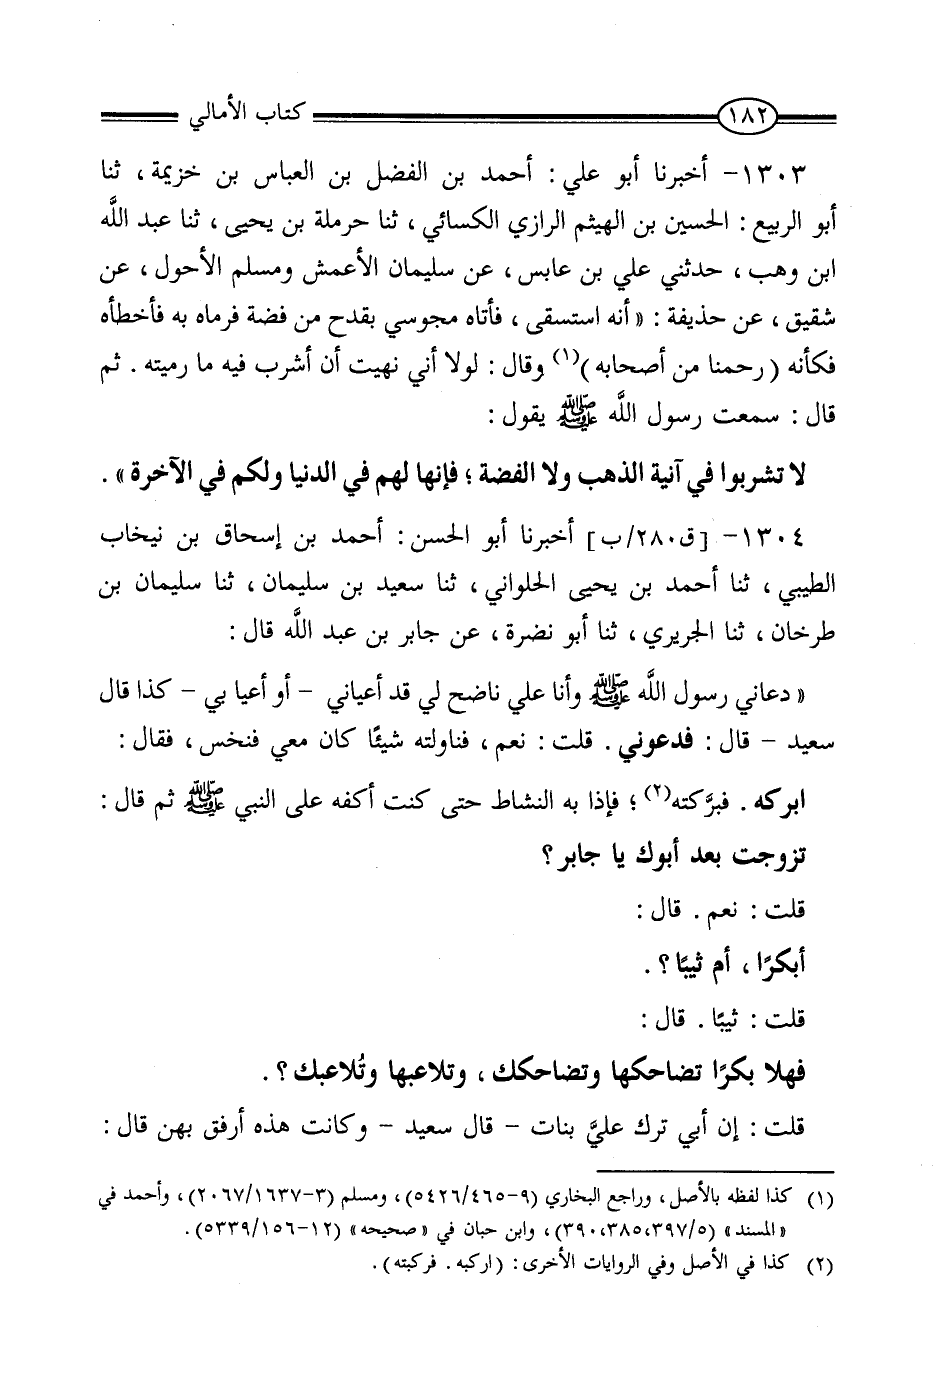 ١٨٢ كتاب الأمالي
١٣٠٣- أخبرنا أبو علي : أحمد بن الفضل بن العباس بن خزيمة ، ثنا
أبو الربيع : الحسين بن الهيثم الرازي الكسائي ، ثنا حرملة بن يحيى ، ثنا عبد اللَّه
ابن وهب ، حدثني علي بن عابس ، عن سليمان الأعمش ومسلم الأحول ، عن
شقيق ، عن حذيفة : « أنه استسقى ، فأتاه مجوسي بقدح من فضة فرماه به فأخطأه
فكأنه ( رحمنا من أصحابه )(١) وقال : لولا أني نهيت أن أشرب فيه ما رميته . ثم
قال : سمعت رسول اللَّه ﷺ يقول :
لا تشربوا في آنية الذهب ولا الفضة ؛ فإنها لهم في الدنيا ولكم في الآخرة » .
١٣٠٤- [ق٢٨٠/ب] أخبرنا أبو الحسن : أحمد بن إسحاق بن نيخاب
الطيبي ، ثنا أحمد بن يحيى الحلواني ، ثنا سعيد بن سليمان ، ثنا سليمان بن
طرخان ، ثنا الجريري ، ثنا أبو نضرة ، عن جابر بن عبد اللَّه قال :
« دعاني رسول اللَّه ﷺ وأنا علي ناضح لي قد أعياني - أو أعيا بي - كذا قال
سعيد - قال : فدعوني . قلت : نعم ، فناولته شيئًا كان معي فنخس ، فقال :
ابركه . فبرَّكته(٢) ؛ فإذا به النشاط حتى كنت أكفه على النبي ﷺ ثم قال :
تزوجت بعد أبوك يا جابر ؟
قلت : نعم . قال :
أبكرًا ، أم ثيبًا ؟ .
قلت : ثيبًا . قال :
فهلا بكرًا تضاحكها وتضاحكك ، وتلاعبها وتُلاعبك ؟ .
قلت : إن أبي ترك عليَّ بنات - قال سعيد - وكانت هذه أرفق بهن قال :
(١) كذا لفظه بالأصل ، وراجع البخاري (٩-٥٤٢٦/٤٦٥) ، ومسلم (٣-٢٠٦٧/١٦٣٧) ، وأحمد في
« المسند » (٣٩٠،٣٨٥،٣٩٧/٥) ، وابن حبان في « صحيحه » (١٢-٥٣٣٩/١٥٦) .
(٢) كذا في الأصل وفي الروايات الأخرى : (اركبه . فركبته) .